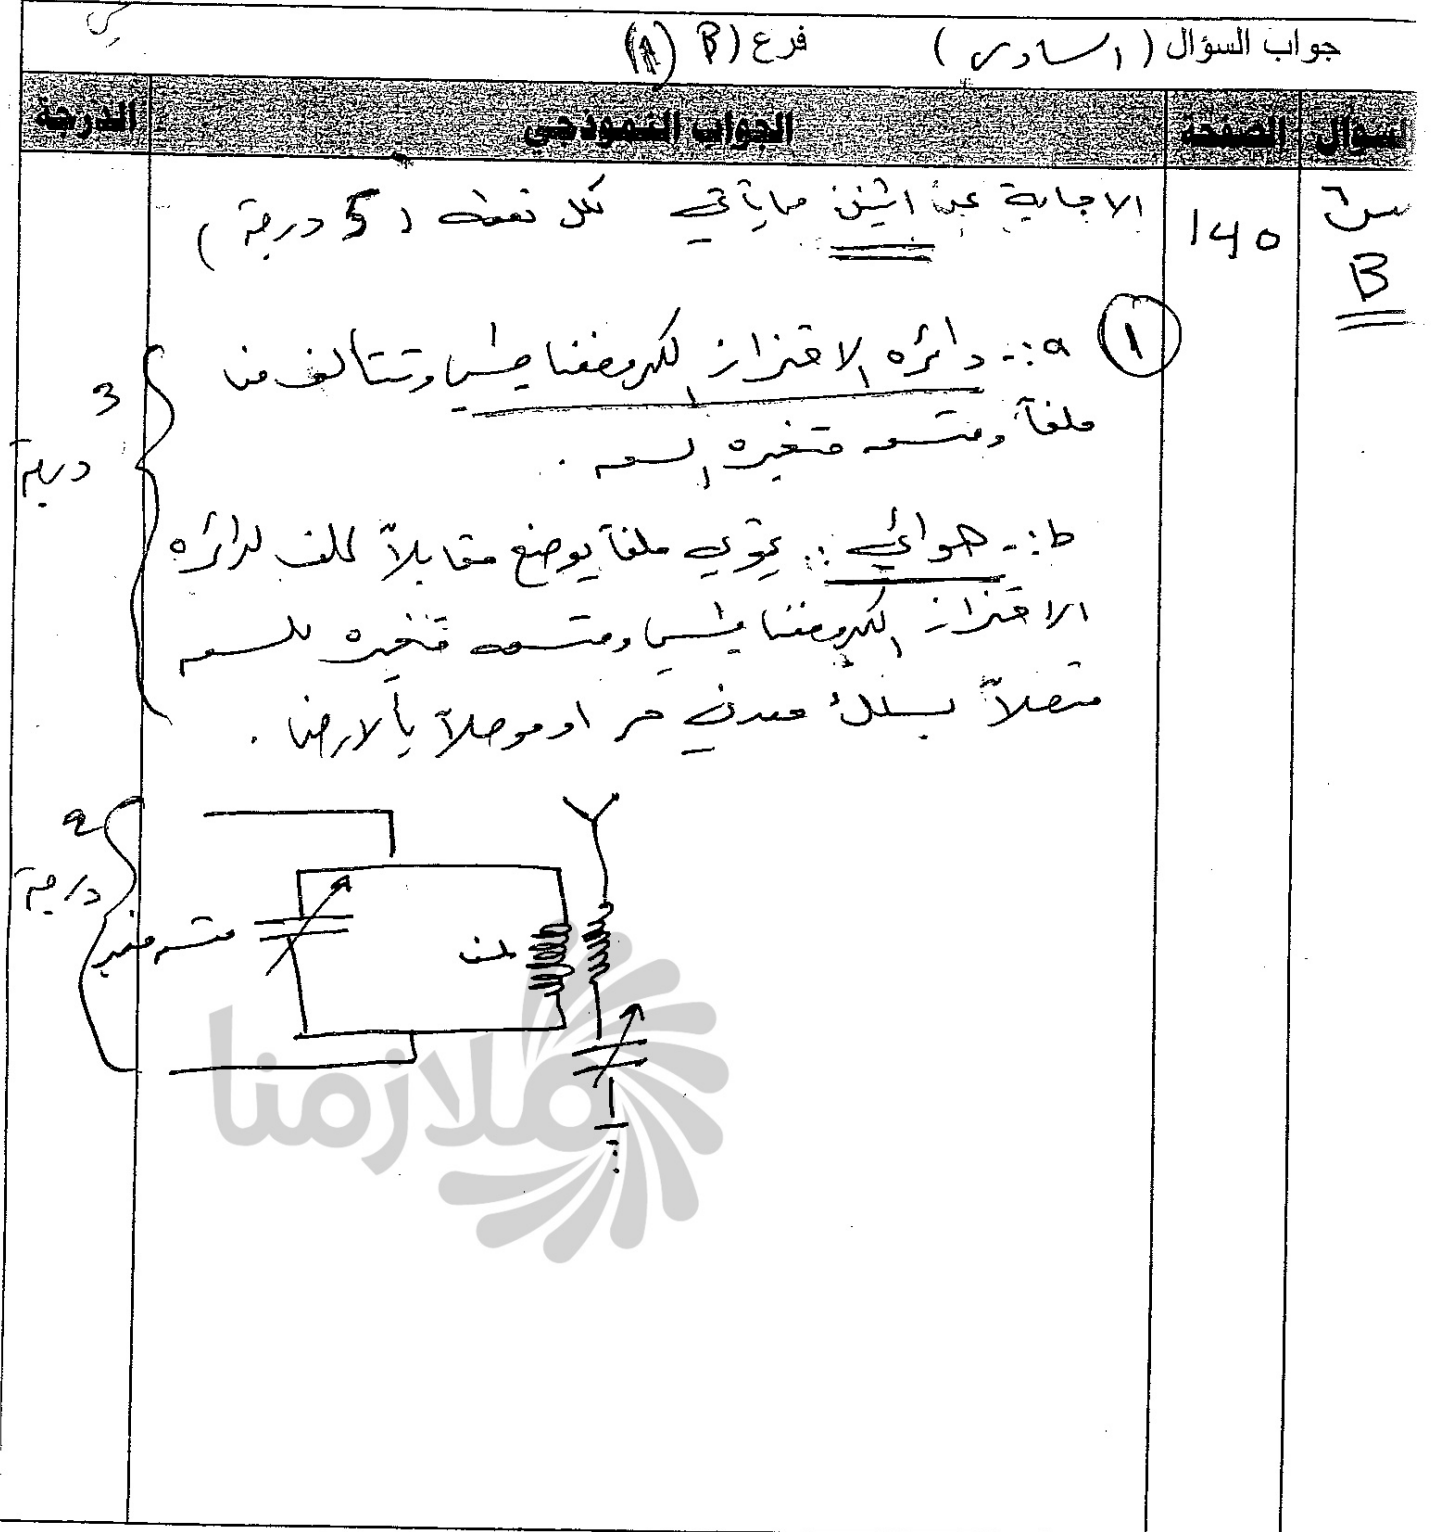 جواب السؤال ( السادس ) فرع ( B )
السؤال الصفحة الجواب النموذجي الدرجة
س٦ B ١٤٥ الاجابة عن اثنين مما يأتي لكل نقطة ( 5 درجة )
١ a :- دائرة الاهتزاز الكهرومغناطيسي وتتألف من
ملفاً ومتسعة متغيرة السعة .
3 درجة
b :- هوائي :. يحتوي ملفاً يوضع مقابلاً لملف لدائرة
الاهتزاز الكهرومغناطيسي ومتسعة متغيرة السعة
متصلاً بسلك معدني حر او موصلاً بالارض .
٢ درجة
متسعة متغيرة
ملف
ملازمنا